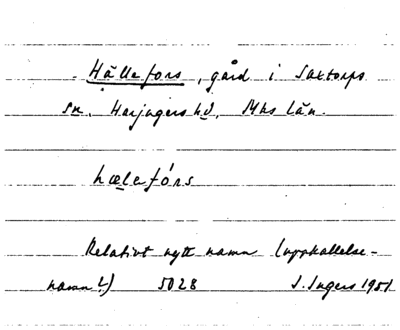 Hällefors, gård i Saxtorps
sn. Harjagers hd. Mhs län.
hælefórs
Relativt nytt namn (uppkallelse-
namn?) 5028 I. Ingers 1951